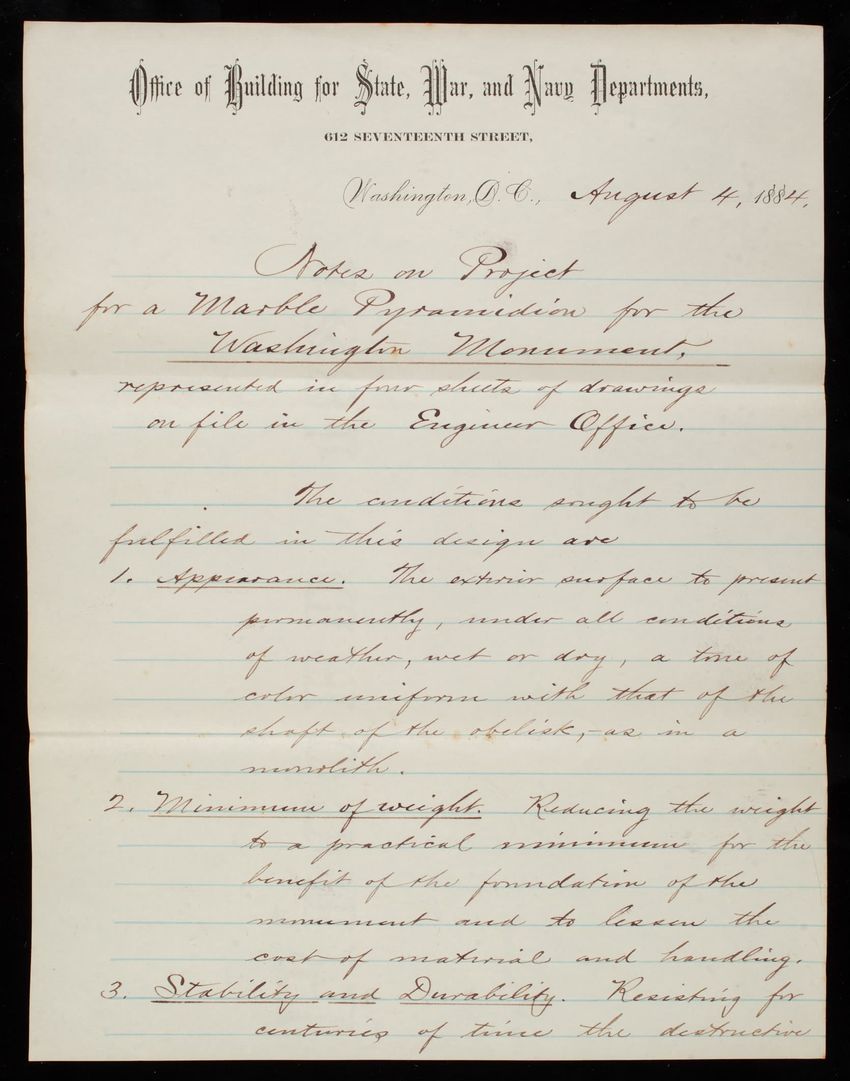 Office of Building for State, War, and Navy Departments,
612 SEVENTEENTH STREET,
Washington, D. C., August 4, 1884.
Notes on Project
for a Marble Pyramidion for the
Washington Monument,
represented in four sheets of drawings
on file in the Engineer Office.
The conditions sought to be
fulfilled in this design are
1. Appearance. The exterior surface to present
permanently, under all conditions
of weather, wet or dry, a tone of
color uniform with that of the
shaft of the obelisk,-as in a
monolith.
2. Minimum of weight. Reducing the weight
to a practical minimum for the
benefit of the foundation of the
monument and to lessen the
cost of material and handling.
3. Stability and Durability. Resisting for
centuries of time the destructive